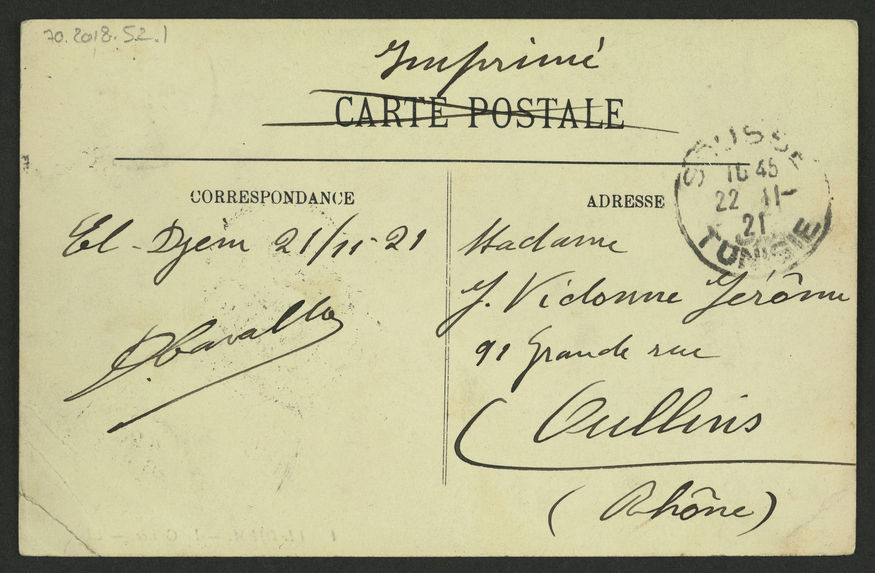 70.2018.52.1
Imprimé
CARTE POSTALE
SOUSSE
16 45
22 11-
21
TUNISIE
CORRESPONDANCE
ADRESSE
El-Djèm 21/11-21
Madame
J. Vidonne Jérôme
91 Grande rue
Oullins
(Rhône)